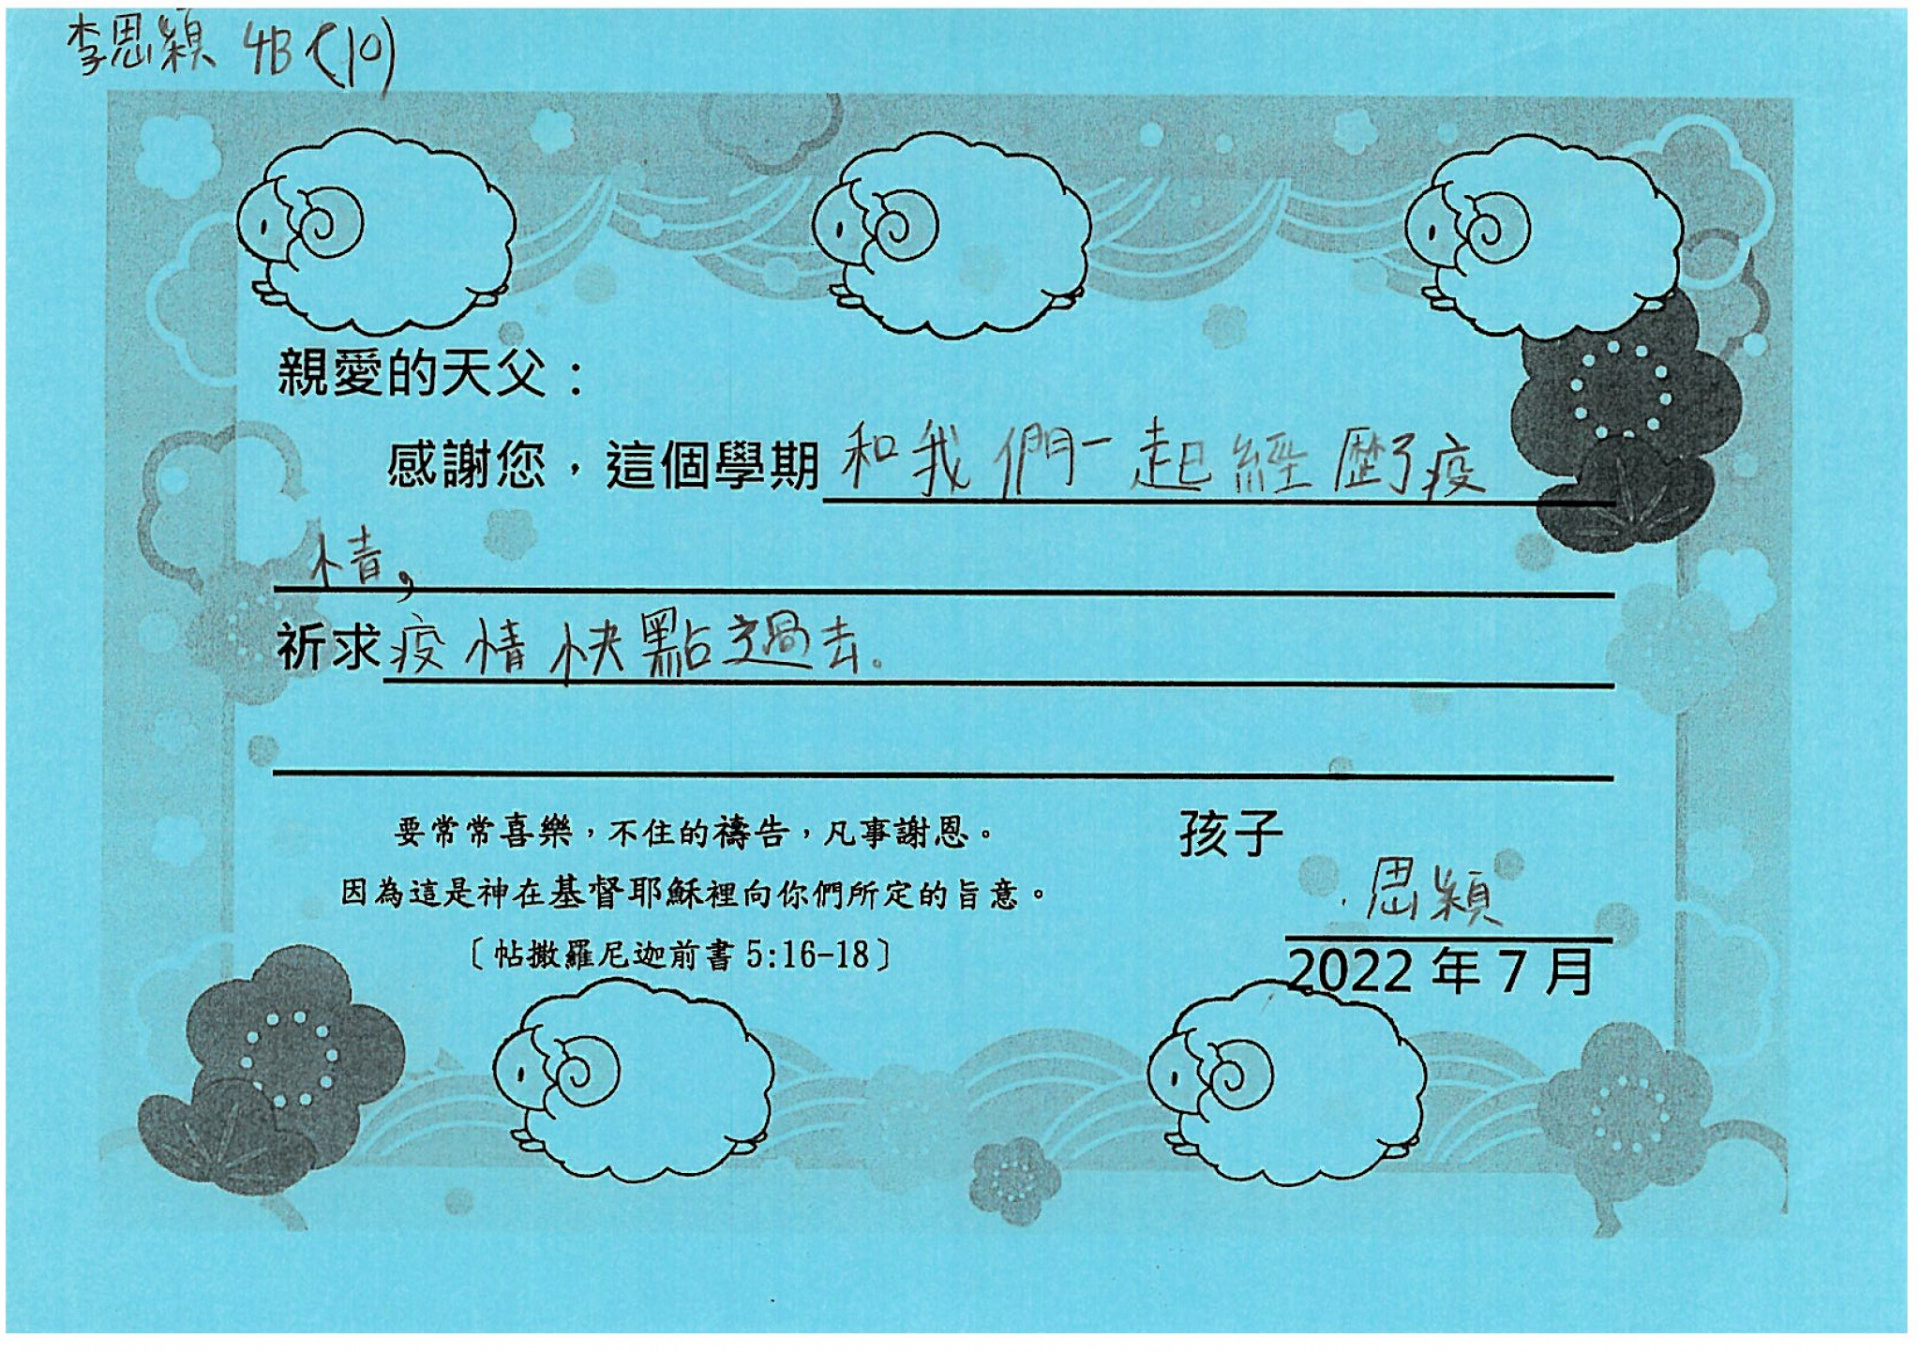 李思穎 4B (10)
親愛的天父：
感謝您，這個學期和我們一起經歷了疫
情，
祈求疫情快點過去。
要常常喜樂，不住的禱告，凡事謝恩。
因為這是神在基督耶穌裡向你們所定的旨意。
〔帖撒羅尼迦前書 5:16-18〕
孩子
思穎
2022 年 7 月